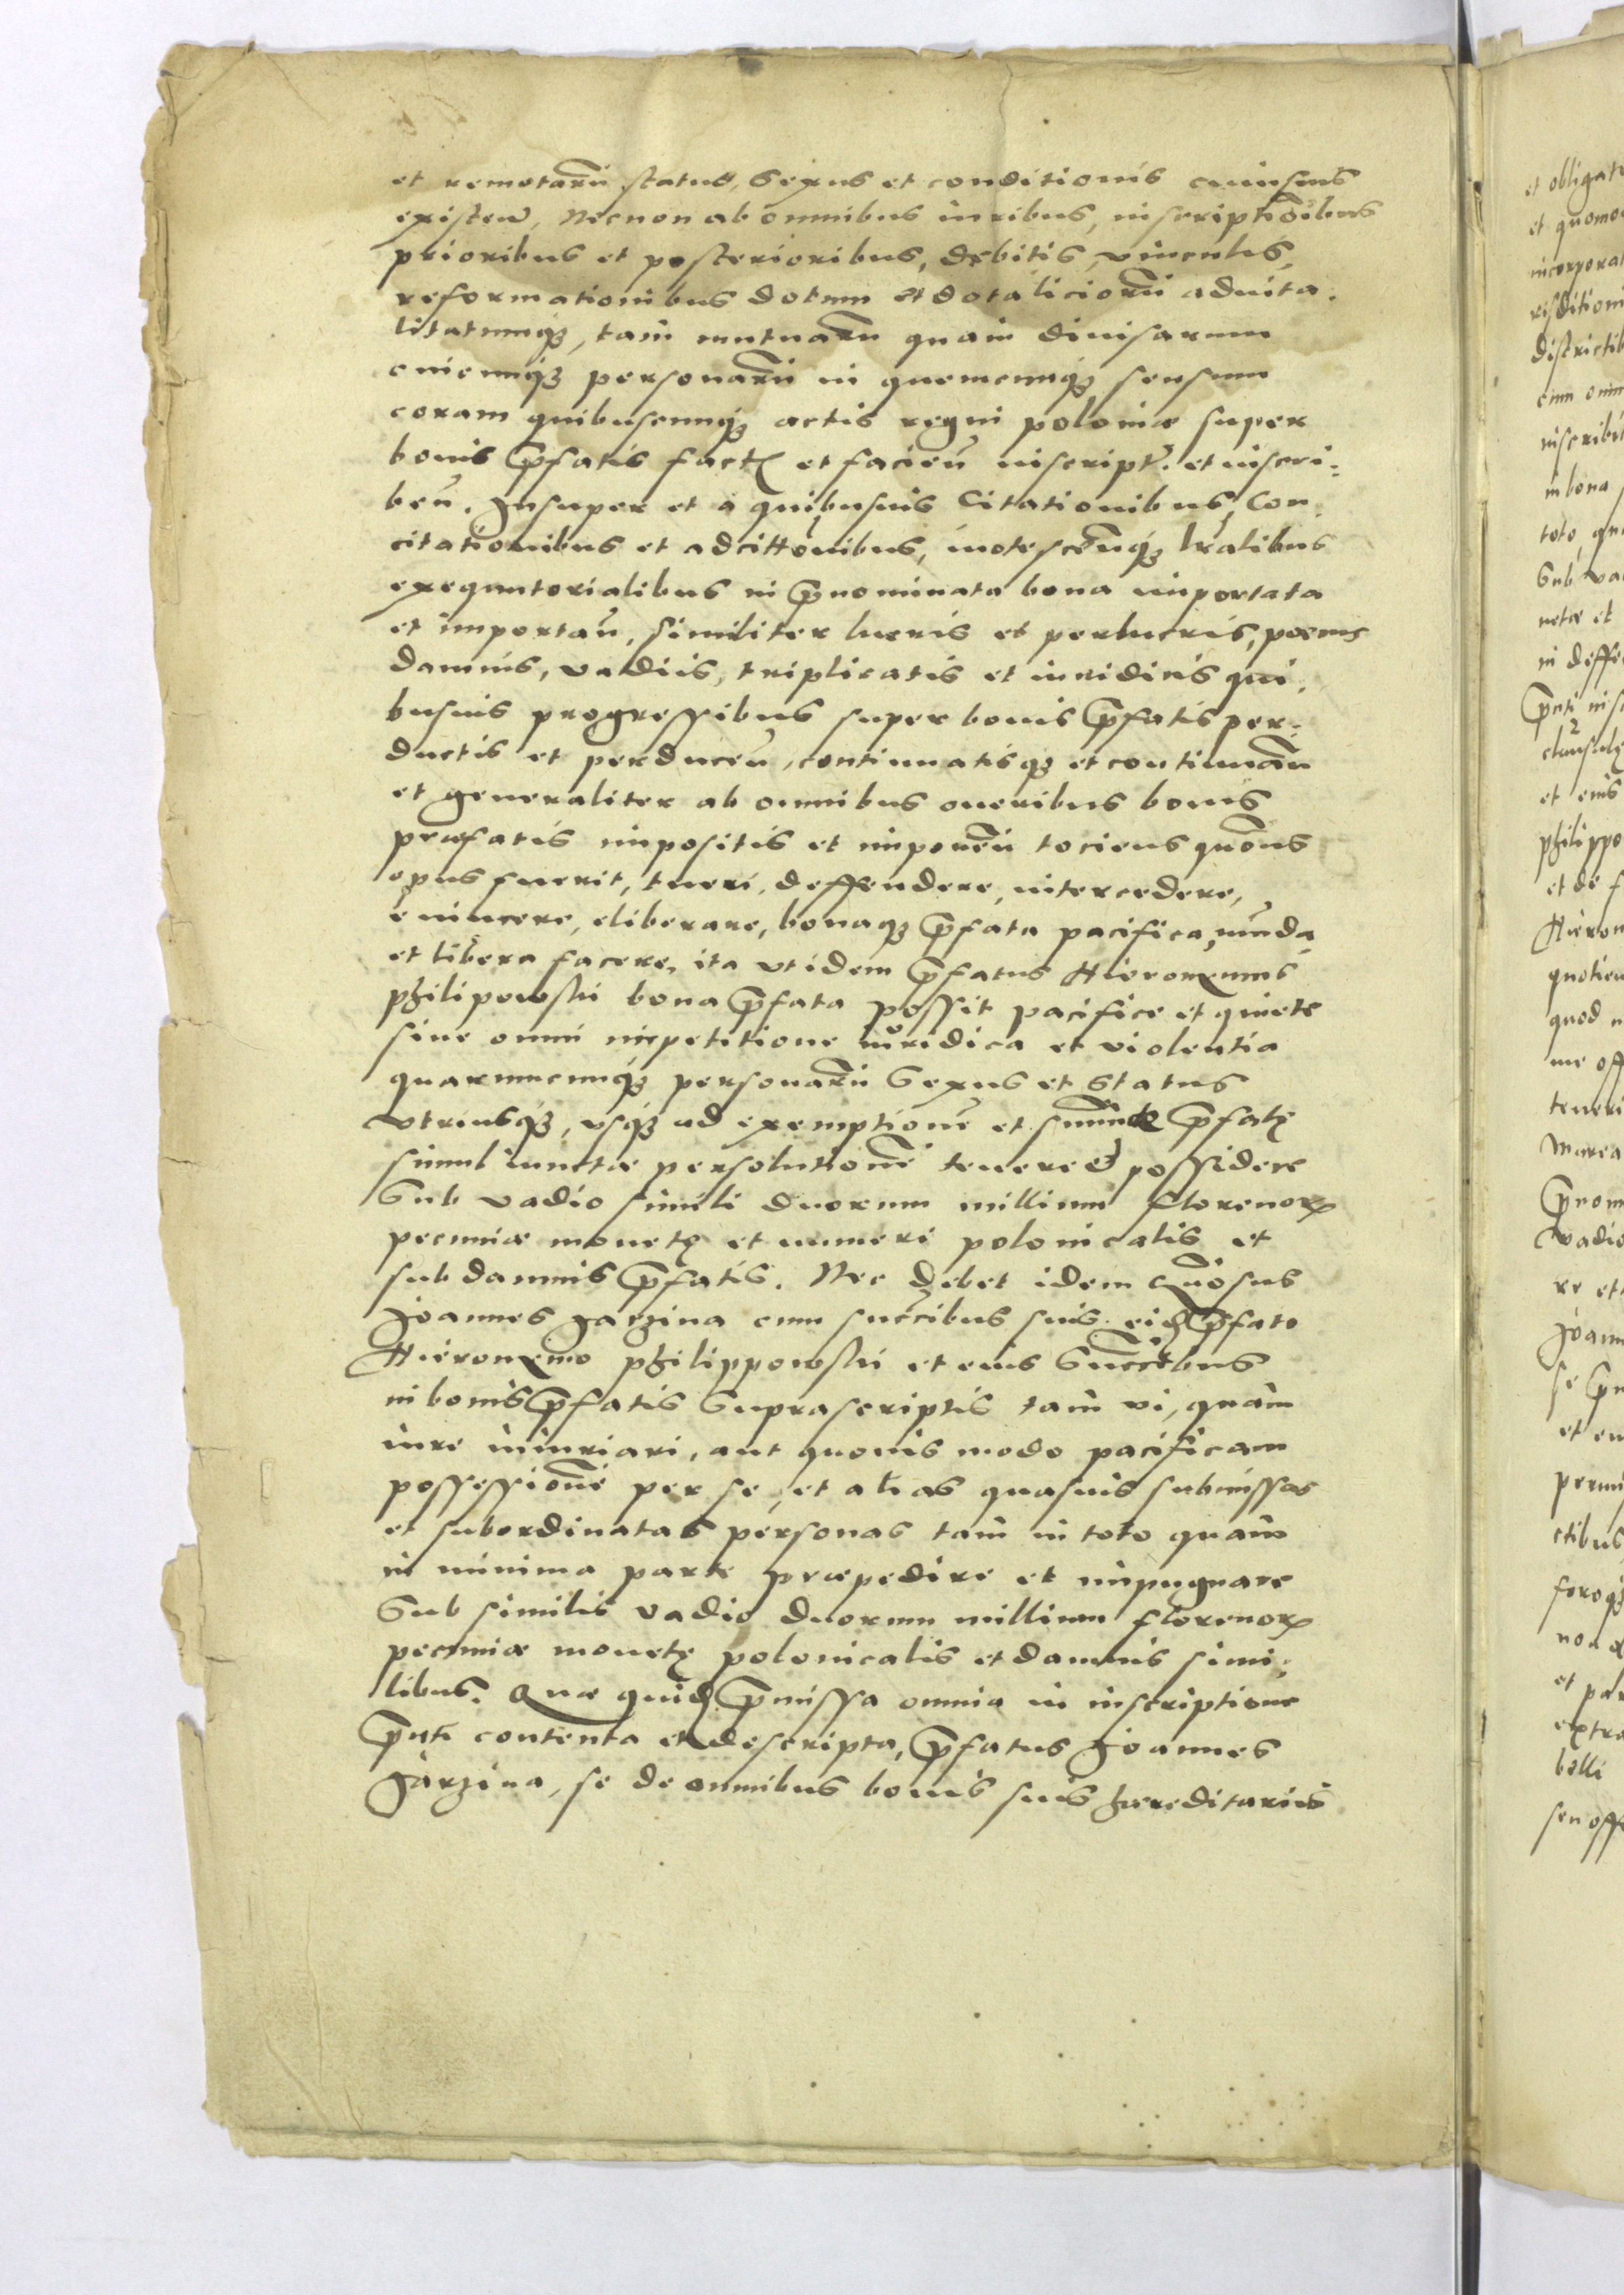 et remotarū status, sexus et conditionis cuiusvis
existeñ, Necnon ab omnibus iuribus, inscriptiōibus
prioribus et posterioribus, debitis, vinculis,
reformationibus dotum et dotaliciorū aduita-
litatumqꝫ, tam mutuarū quam diuisarum
cuicunqꝫ personarū in quemcunqꝫ sensum
coram quibuscunqꝫ actis regni poloniæ super
bonis p̄fatis fact̄ et facień inscript̄. et inscri-
beń. Insuper et a quibusuis Citationibus, Con-
citationibus et adcittōnibus, inotescenqꝫ l̄ralibus
exequutorialibus in p̄nominata bona importata
et importań, similiter lucris et perlucris, poenis
damnis, vadiis, triplicatis et iuridicis qui-
busuis progressibus super bonis p̄fatis per-
ductis et perduceń, continuatisqꝫ et continuań
et generaliter ab omnibus oneribus bonis
præfatis impositis et imponeń tociens quōns
opus fuerit, tueri, deffendere, intercedere,
euincere, eliberare, bonaqꝫ p̄fata pacifica, munda
et libera facere, ita vt idem p̄fatus Hieronymus
philipowski bona p̄fata possit pacifice et quiete
sine omni impetitione iuridica et violentia
quarumcunqꝫ personarū sexus et status
vtriusqꝫ, vsqꝫ ad exemptionē et sum̄æ p̄fatę
simul iunctæ persolutionē tenere et possidere
sub vadio simili duorum millium florenorꝝ
pecuniæ monetę et numeri polonicalis et
sub damnis p̄fatis. Nec debet idem gn̄osus
Joannes Jarzina cum succ̄ribus suis eid p̄fato
Hieronymo philippowski et eius succ̄ribus
in bonis p̄fatis suprascriptis tam vi, quam
iure iniuriari, aut quouis modo pacificam
possessionē per se, et alias quasuis submissas
et subordinatas personas tam in toto quam
in minima parte præpedire et impugnare
sub similis vadio duorum millium florenorꝝ
pecuniæ monetę polonicalis et damnis simi-
libus. Quæ quid p̄missa omnia in inscriptione
p̄nti contenta et descripta, p̄fatus Joannes
Jarzina, se de omnibus bonis suis hæreditariis